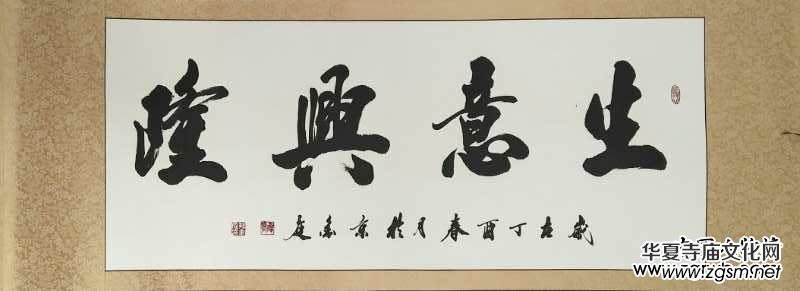 生意興隆
歲在丁酉春月於京
华夏寺庙文化网
www.fzgsm.net